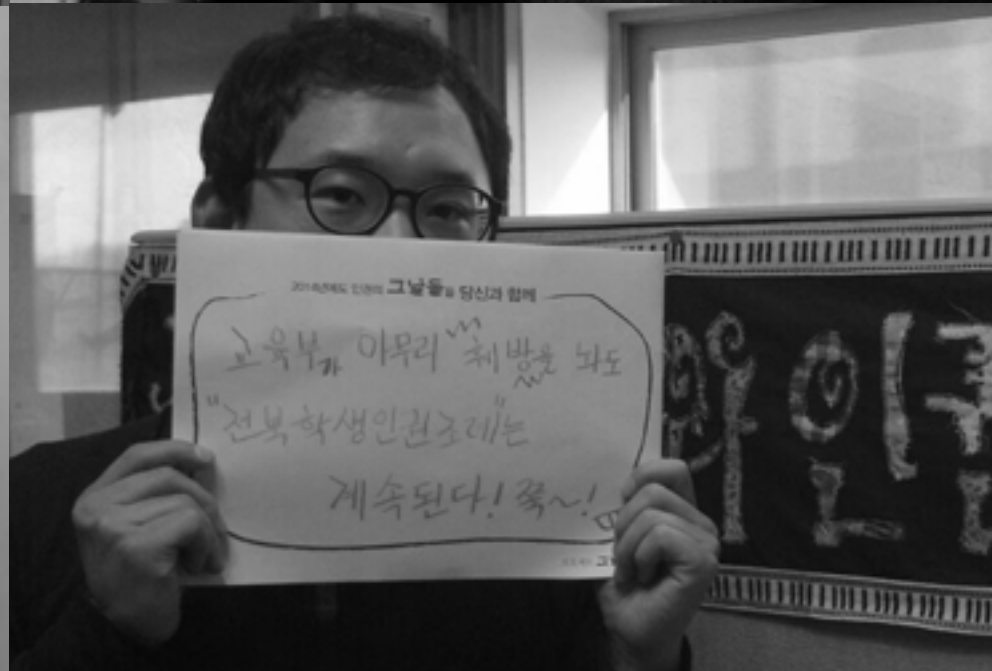 2014년에도 인권의 그날들을 당신과 함께
교육부가 아무리 "훼방"을 놔도
"전북학생인권조례"는
계속된다! 쭉~!
인권